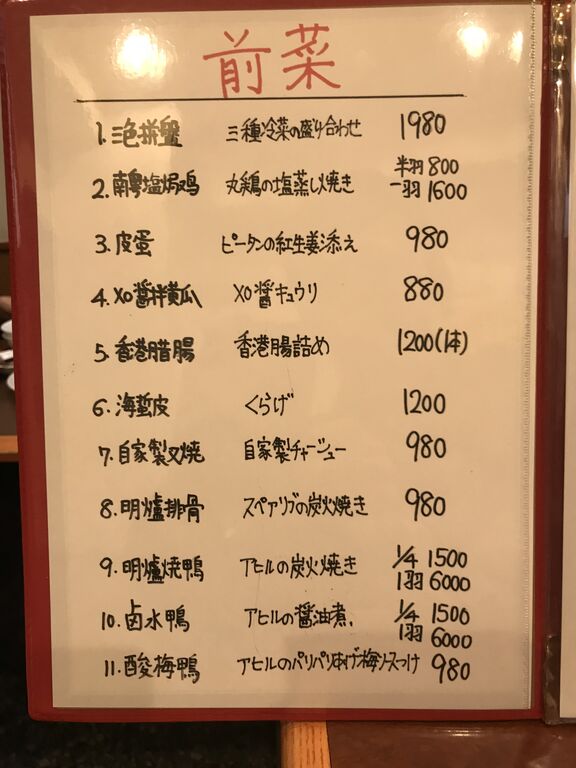 前菜
1.三色拼盤 三種冷菜の盛り合わせ 1980
2.南粤塩焗鸡 丸鶏の塩蒸し焼き 半羽 800
一羽 1600
3.皮蛋 ピータンの紅生姜添え 980
4.XO醤拌黄瓜 XO醤キュウリ 880
5.香港腊腸 香港腸詰め 1200(1本)
6.海蜇皮 くらげ 1200
7.自家製叉焼 自家製チャーシュー 980
8.明爐排骨 スペアリブの炭火焼き 980
9.明爐焼鴨 アヒルの炭火焼き 1/4 1500
1羽 6000
10.卤水鴨 アヒルの醤油煮 1/4 1500
1羽 6000
11.酸梅鴨 アヒルのパリパリあげ梅ソースつけ 980